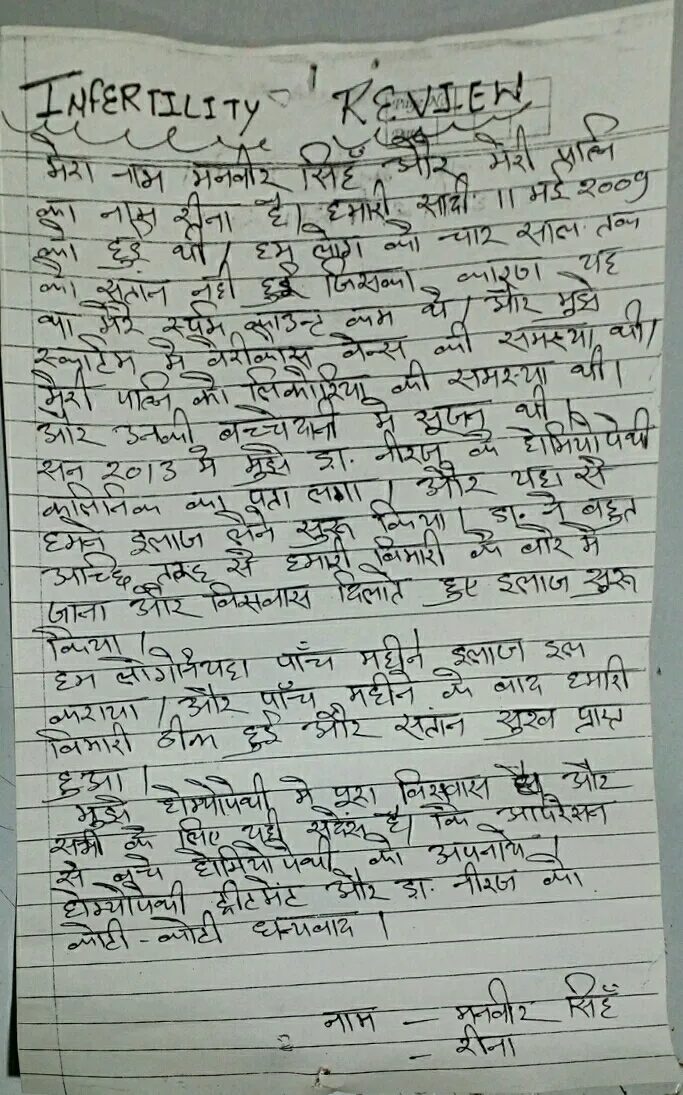 INFERTILITY REVIEW
मेरा नाम मनवीर सिहँ और मेरी पत्नि
का नाम रीना है। हमारी सादी 11 मई 2009
को हुई थी। हम लोग को चार साल तक
को सतांन नही हुई जिसका कारण यह
था मेरे स्पंम काउन्ट कम थे। और मुझे
स्काटेम मे वेरीकास वेन्स की समस्या थी।
मेरी पत्नि को लिकोरिया की समस्या थी।
और उनकी बच्चेदानी मे सूजन थी।
सन 2013 मे मुझे डा. नीरज के होमियोपेथी
कलिनिक का पता लगा। और यहा से
हमने इलाज लेने सुरू किया। डा. ने बहुत
अच्छि तरह से हमारी बिमारी के बारे मे
जाना और विसवास दिलाते हुए इलाज सुरू
किया।
हम लोगोने यहा पाँच महीने इलाज
कराया। और पाँच महीने के बाद हमारी
बिमारी ठीक हुई और सतांन सुख प्राप्त
हुआ।
मुझे होम्योपेथी मे पूरा विसवास है और
सभी के लिए यही सदेंस है। कि आपरेसन
से बचे होमियोपेथी को अपनाये।
होम्योपेथी ट्रीटमेंट और डा. नीरज को
कोटी-कोटी धन्यवाद।
नाम - मनवीर सिहँ
- रीना